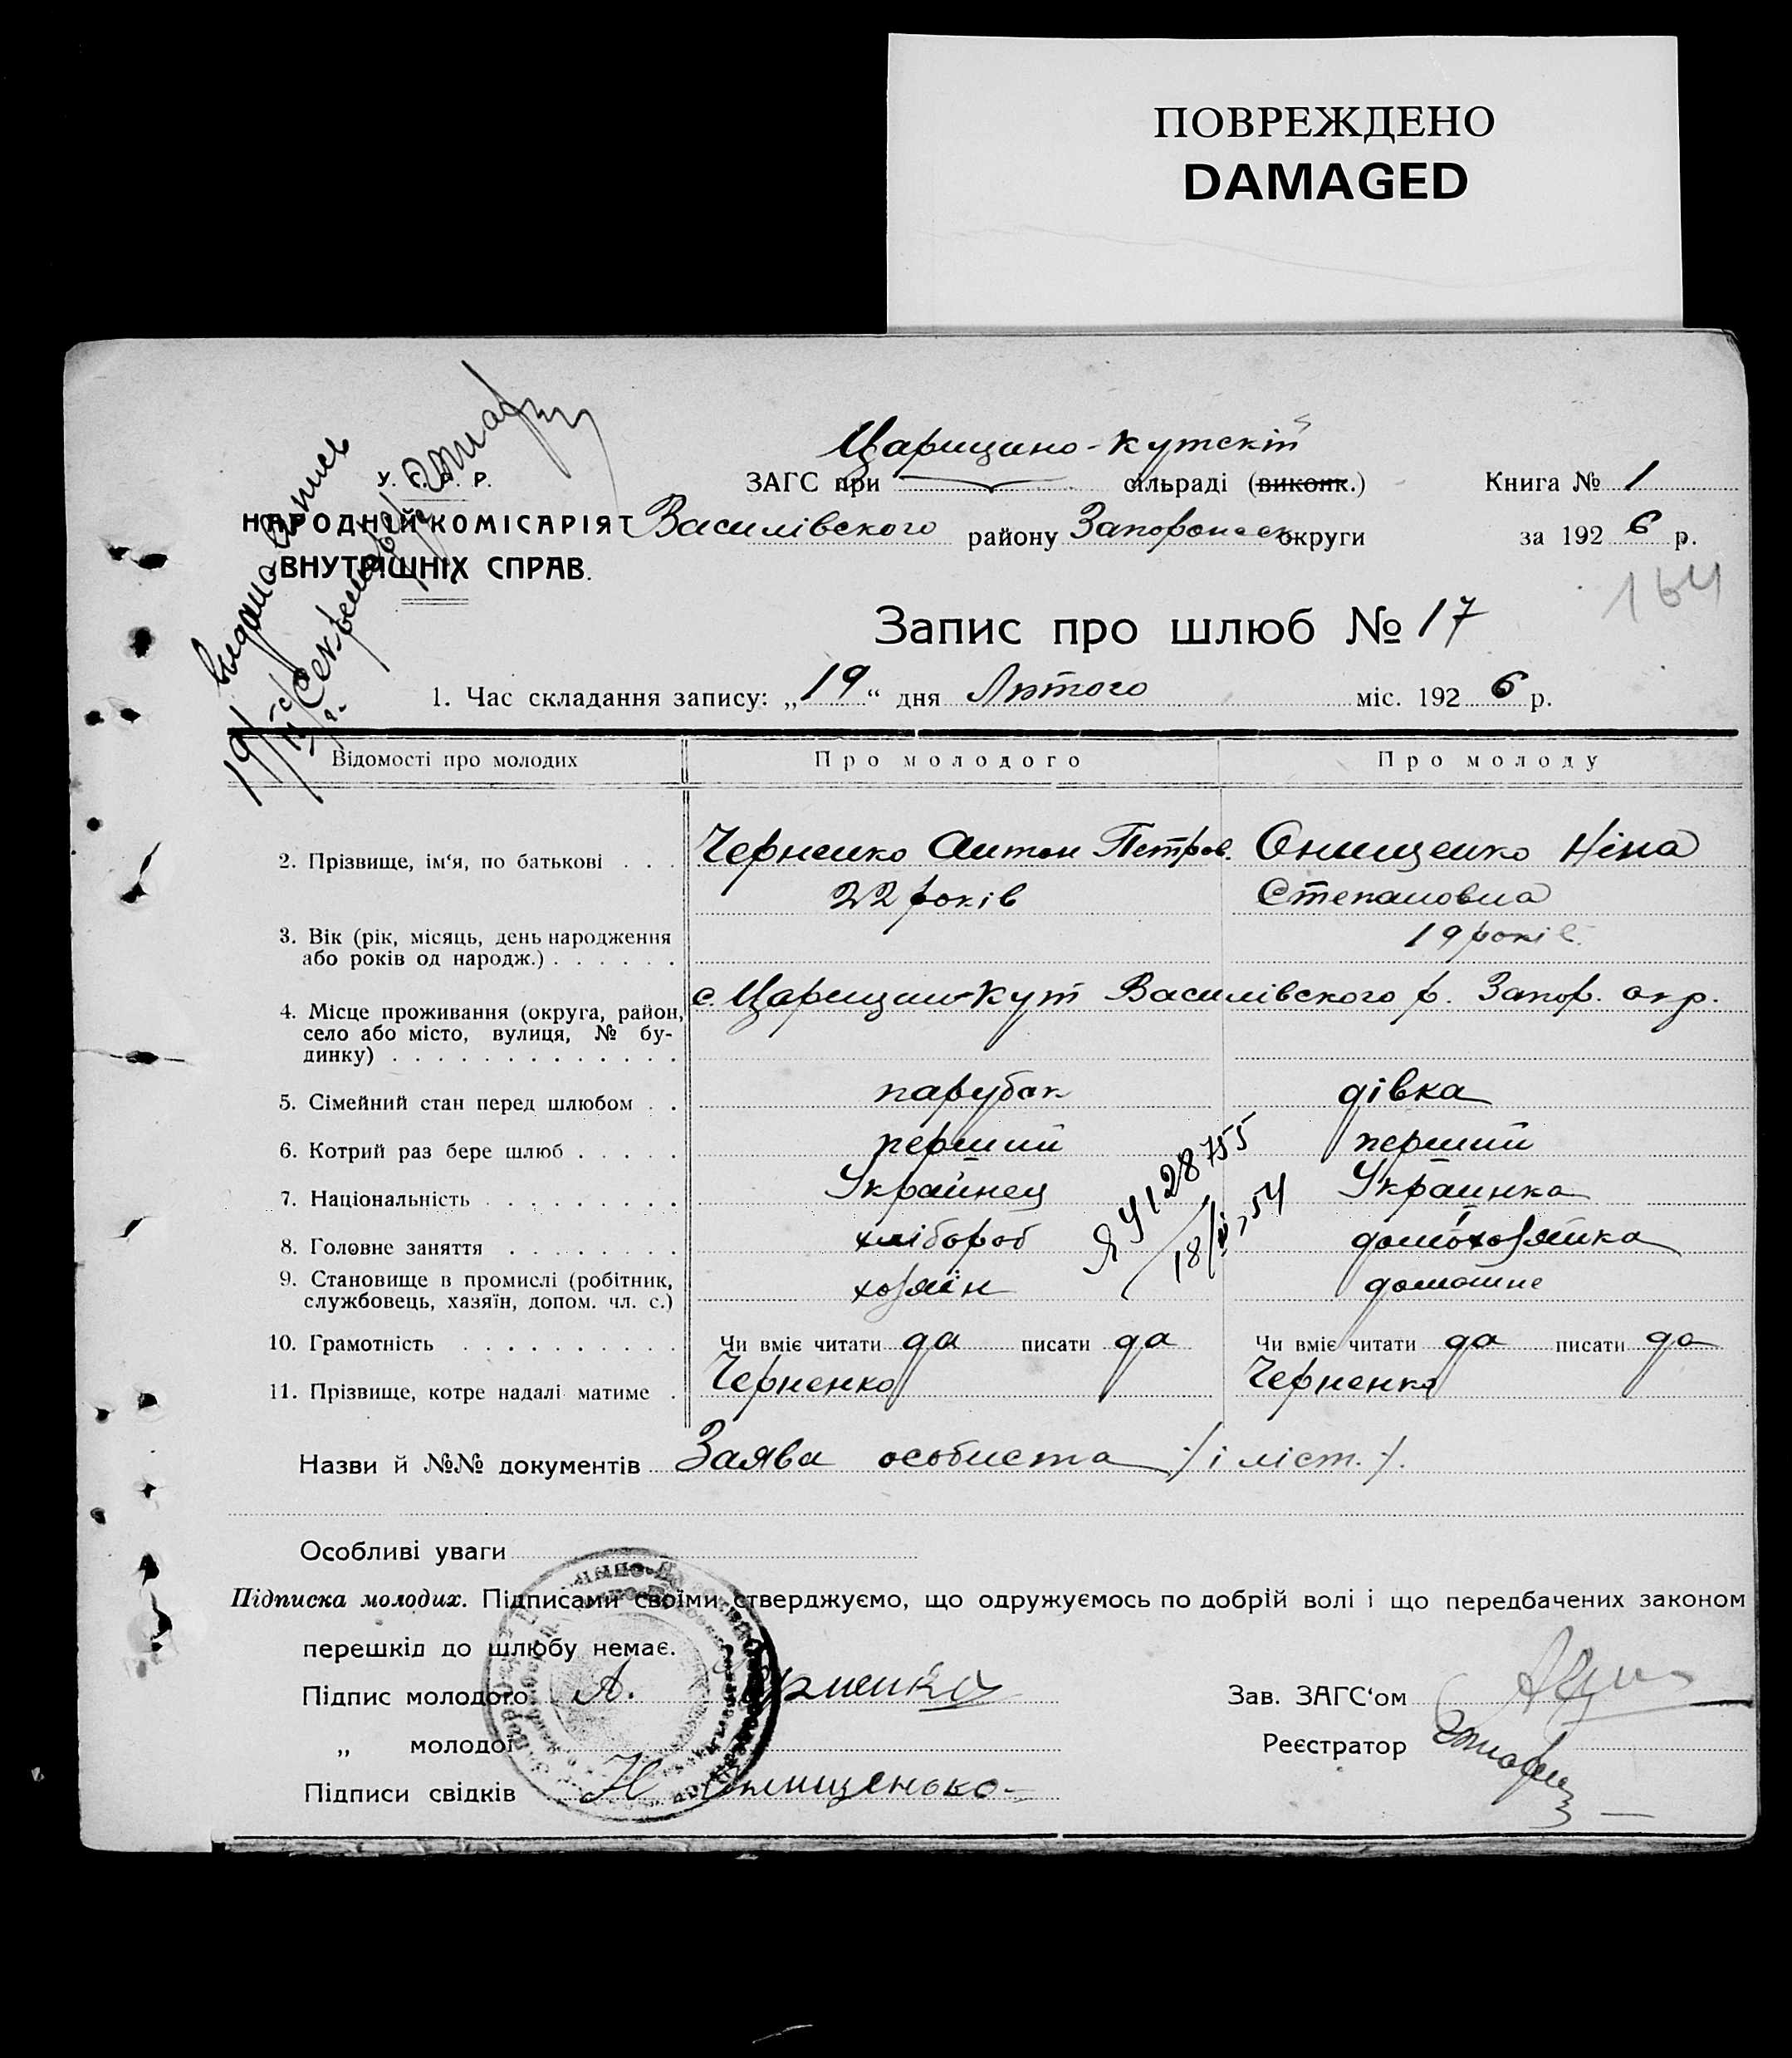 ПОВРЕЖДЕНО
DAMAGED
Царицино-Кутскій
У. С. Р. Р.
ЗАГС при сільраді (виконк.) Книга № 1
НАРОДНІЙ КОМІСАРІЯТ Василівского району Запорожск округи за 1926 р.
ВНУТРІШНІХ СПРАВ.
164
Запис про шлюб № 17
1. Час складання запису: „19“ дня Лютого міс. 1926 р.
Видана Випись
19
Секретарь
Відомості про молодих Про молодого Про молоду
2. Прізвище, ім‘я, по батькові . . . Черненко Антон Петров. Онищенко Ніна
22 років Степановна
3. Вік (рік, місяць, день народження 19 років
або років од народж.) . . . . . .
4. Місце проживання (округа, район, с. Царицин-Кут Василівского р. Запор. окр.
село або місто, вулиця, № бу-
динку) . . . . . . . . . . . . .
5. Сімейний стан перед шлюбом . . парубок дівка
6. Котрий раз бере шлюб . . . . . перший перший
7. Національність . . . . . . . . . Украйнец Украинка
ЯУ 128755
18/ 54
8. Головне заняття . . . . . . . . хлібороб домохозяйка
9. Становище в промислі (робітник, хозяїн домашне
службовець, хазяїн, допом. чл. с.)
10. Грамотність . . . . . . . . . . Чи вміє читати да писати да Чи вміє читати да писати да
11. Прізвище, котре надалі матиме . Черненко Черненко
Назви й №№ документів Заява особиста /і міст./.
Особливі уваги
Підписка молодих. Підписами своїми стверджуємо, що одружуємось по добрій волі і що передбачених законом
перешкід до шлюбу немає.
Підпис молодого А. Черненко Зав. ЗАГС‘ом
„ молодої Реєстратор
Підписи свідків Н Онищенько